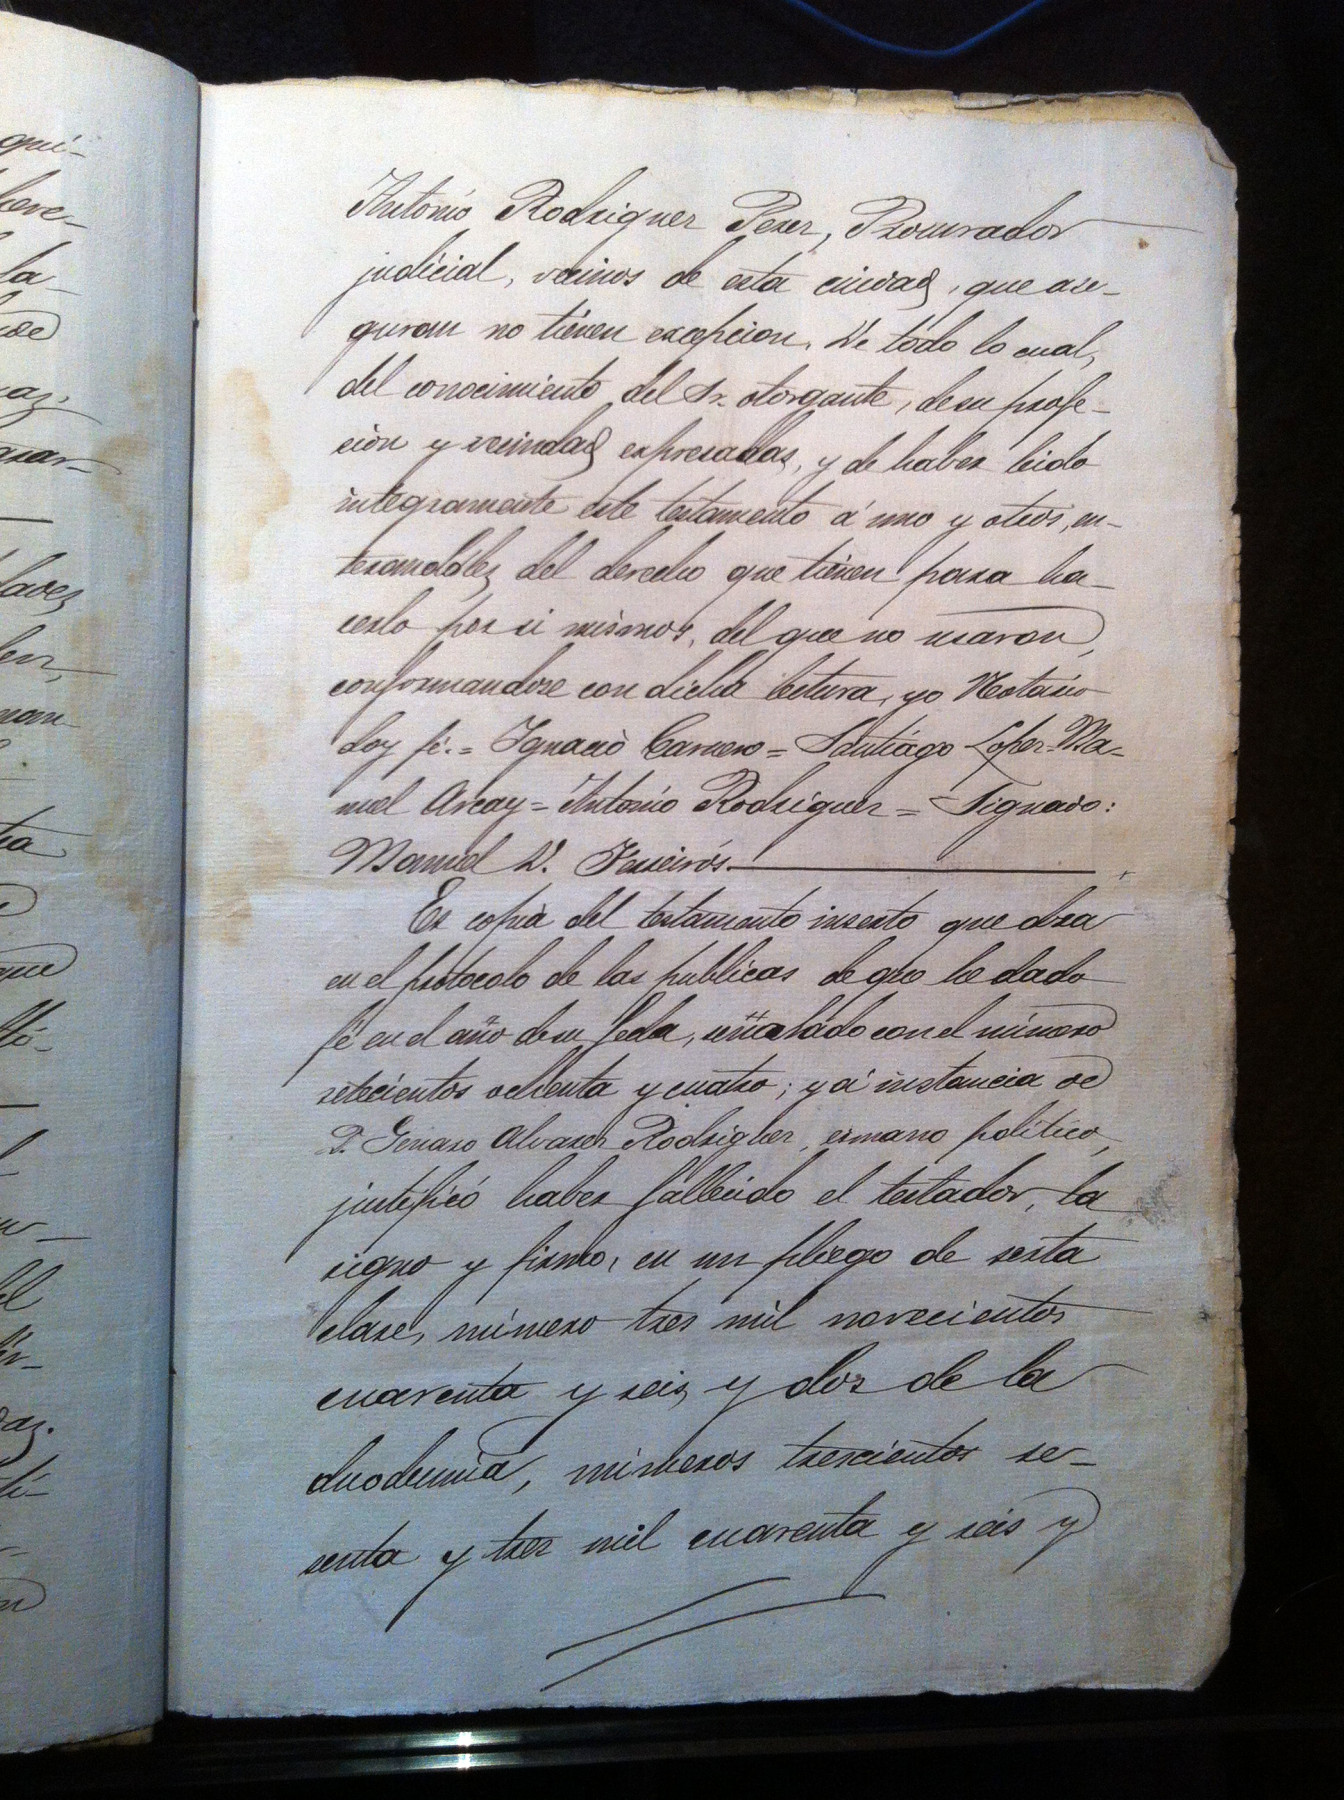 quí-
here-
la-
de
az.
asar-
laves
ler,
man
tra
que
ltó-
el
az.
tí-
Antonio Rodriguez Perez, Procurador
judicial, vecinos de esta ciudad, que ase-
guran no tienen excepcion. De todo lo cual,
del conocimiento del Sr. otorgante, de su profe-
sion y vecindad expresadas, y de haber leido
integramente este testamento á uno y otros, en-
terandoles del derecho que tienen para ha-
cerlo por si mismos, del que no usaron,
conformandose con dicha lectura, yo Notario
doy fé.= Ignacio Carnero = Santiago Lopez-Ma-
nuel Arcay = Antonio Rodriguez = Signado:
Manuel D. Ferreirós.
Es copia del testamento inserto que obra
en el protocolo de las publicas de que he dado
fé en el año de su fecha, señalado con el número
setecientos ochenta y cuatro; y á instancia de
D. Genaro Alvarez Rodriguez, ermano político,
justificó haber fallecido el testador, la
signo y firmo, en un pliego de sesta
clase, número tres mil novecientos
cuarenta y seis, y dos de la
duodecima, números trescientos se-
senta y tres mil cuarenta y seis y